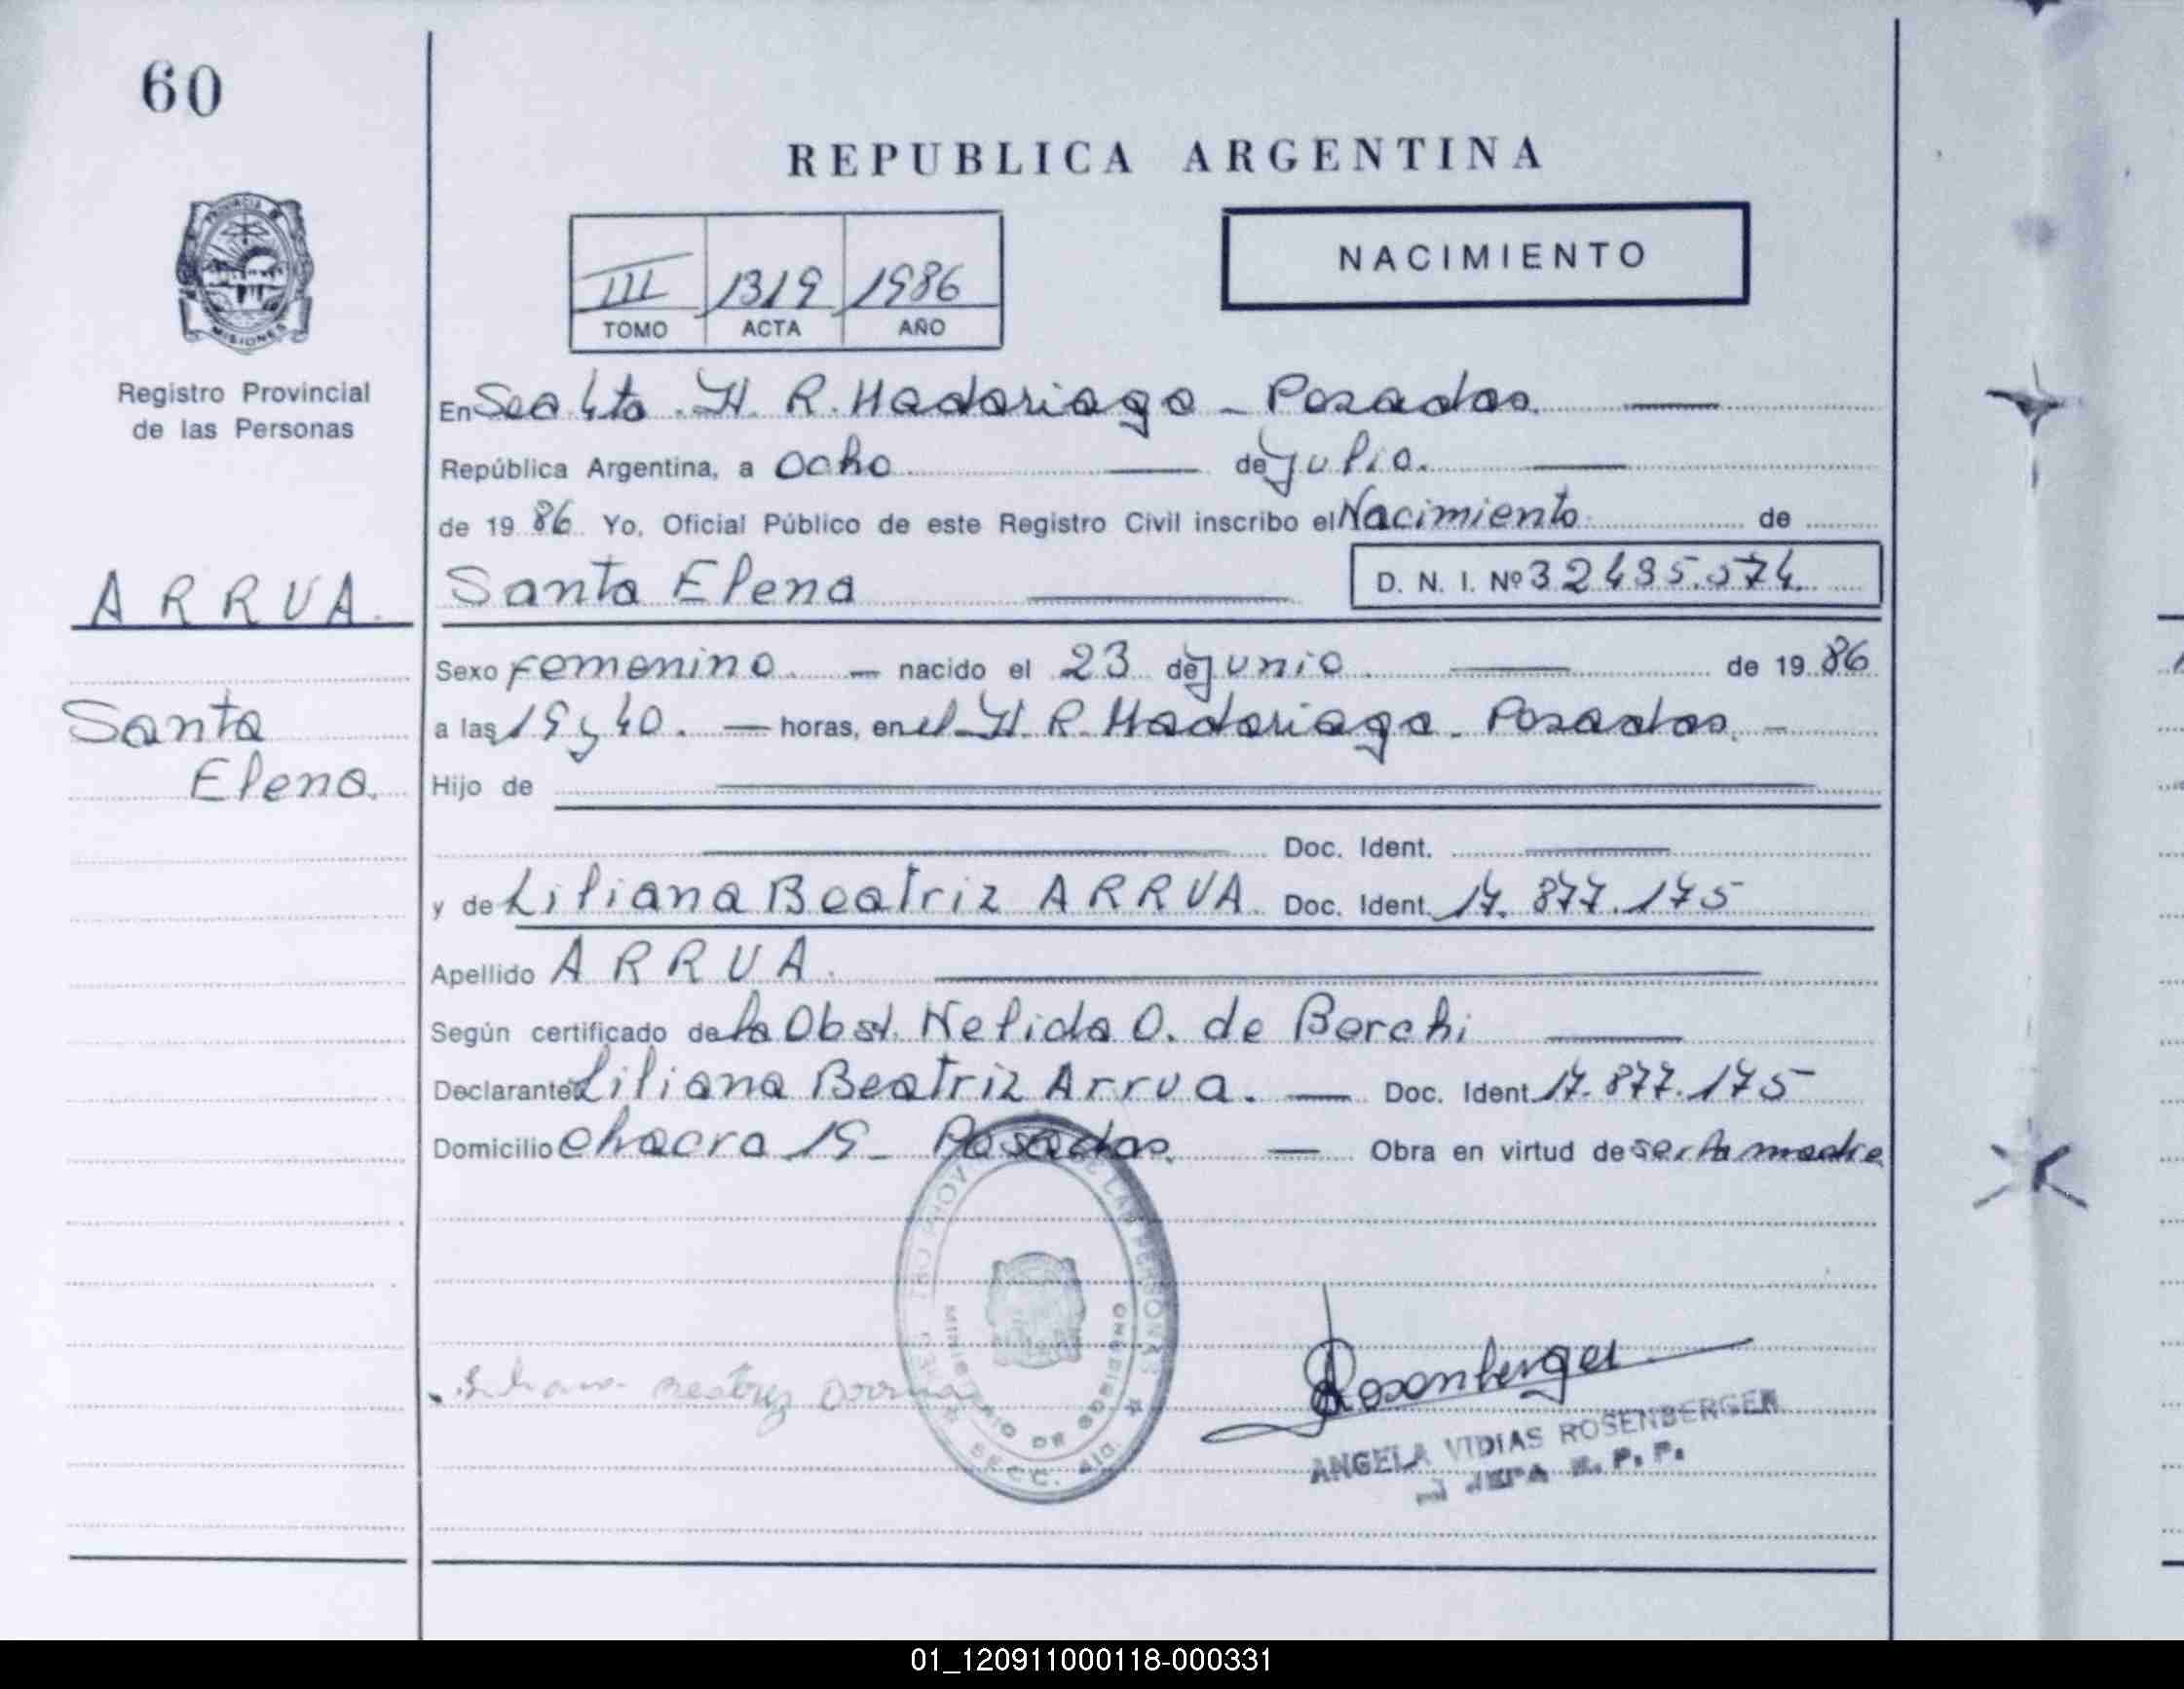 60
REPUBLICA ARGENTINA
NACIMIENTO
III 1319 1986
TOMO ACTA AÑO
PROVINCIA DE
MISIONES
Registro Provincial
de las Personas
En Sea 4ta. H. R. Madariaga - Posadas.
República Argentina, a ocho de julio.
de 19 86 Yo, Oficial Público de este Registro Civil inscribo el Nacimiento de
Santa Elena D. N. I. Nº 32435.574.
ARRUA.
Santa
Elena.
Sexo femenino. nacido el 23 de junio de 19 86
a las 19 y 40. horas, en el H. R. Madariaga - Posadas.
Hijo de
Doc. Ident.
y de Liliana Beatriz ARRUA. Doc. Ident. 17.877.175
Apellido ARRUA.
Según certificado de la Obst. Nelida O. de Borchi
Declarante Liliana Beatriz Arrua. Doc. Ident 17.877.175
Domicilio chacra 19 - Posadas. Obra en virtud de ser la madre
DE LAS PERSONAS
MINISTERIO DE GOBIERNO
SECC. 4ta.
Liliana Beatriz Arrua
Rosenberger
ANGELA VIDIAS ROSENBERGER
JEFA R. P. P.
01_120911000118-000331